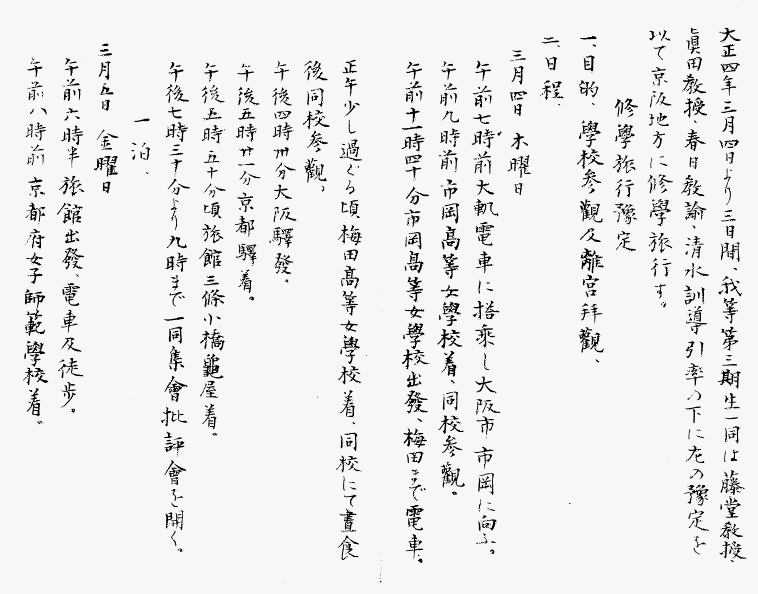 大正四年三月四日より三日間、我等第三期生一同は藤堂教授、
眞田教授、春日教諭、清水訓導引率の下に左の豫定を
以て京阪地方に修學旅行す。
修學旅行豫定
一、目的、學校參觀及離宮拜觀、
二、日程、
三月四日 木曜日
午前七時前大軌電車に搭乘し大阪市市岡に向ふ。
午前九時前市岡高等女學校着、同校參觀。
午前十一時四十分市岡高等女學校出發、梅田まで電車。
正午少し過ぐる頃梅田高等女學校着、同校にて晝食
後同校參觀、
午後四時卅分大阪驛發、
午後五時廿一分京都驛着。
午後五時五十分頃旅館三條小橋龜屋着。
午後七時三十分より九時まで一同集會批評會を開く。
一泊、
三月五日 金曜日
午前六時半旅館出發、電車及徒歩。
午前八時前京都府女子師範學校着。